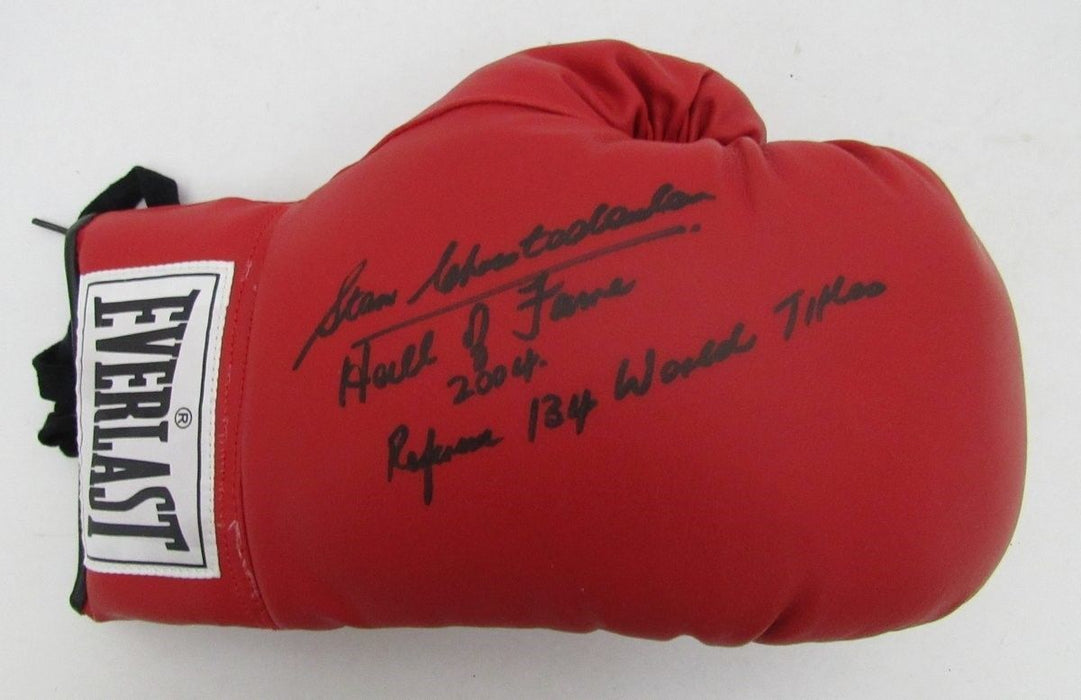 EVERLAST ®
Stan Christodoulou
Hall of Fame
2004.
Referee 134 World Titles